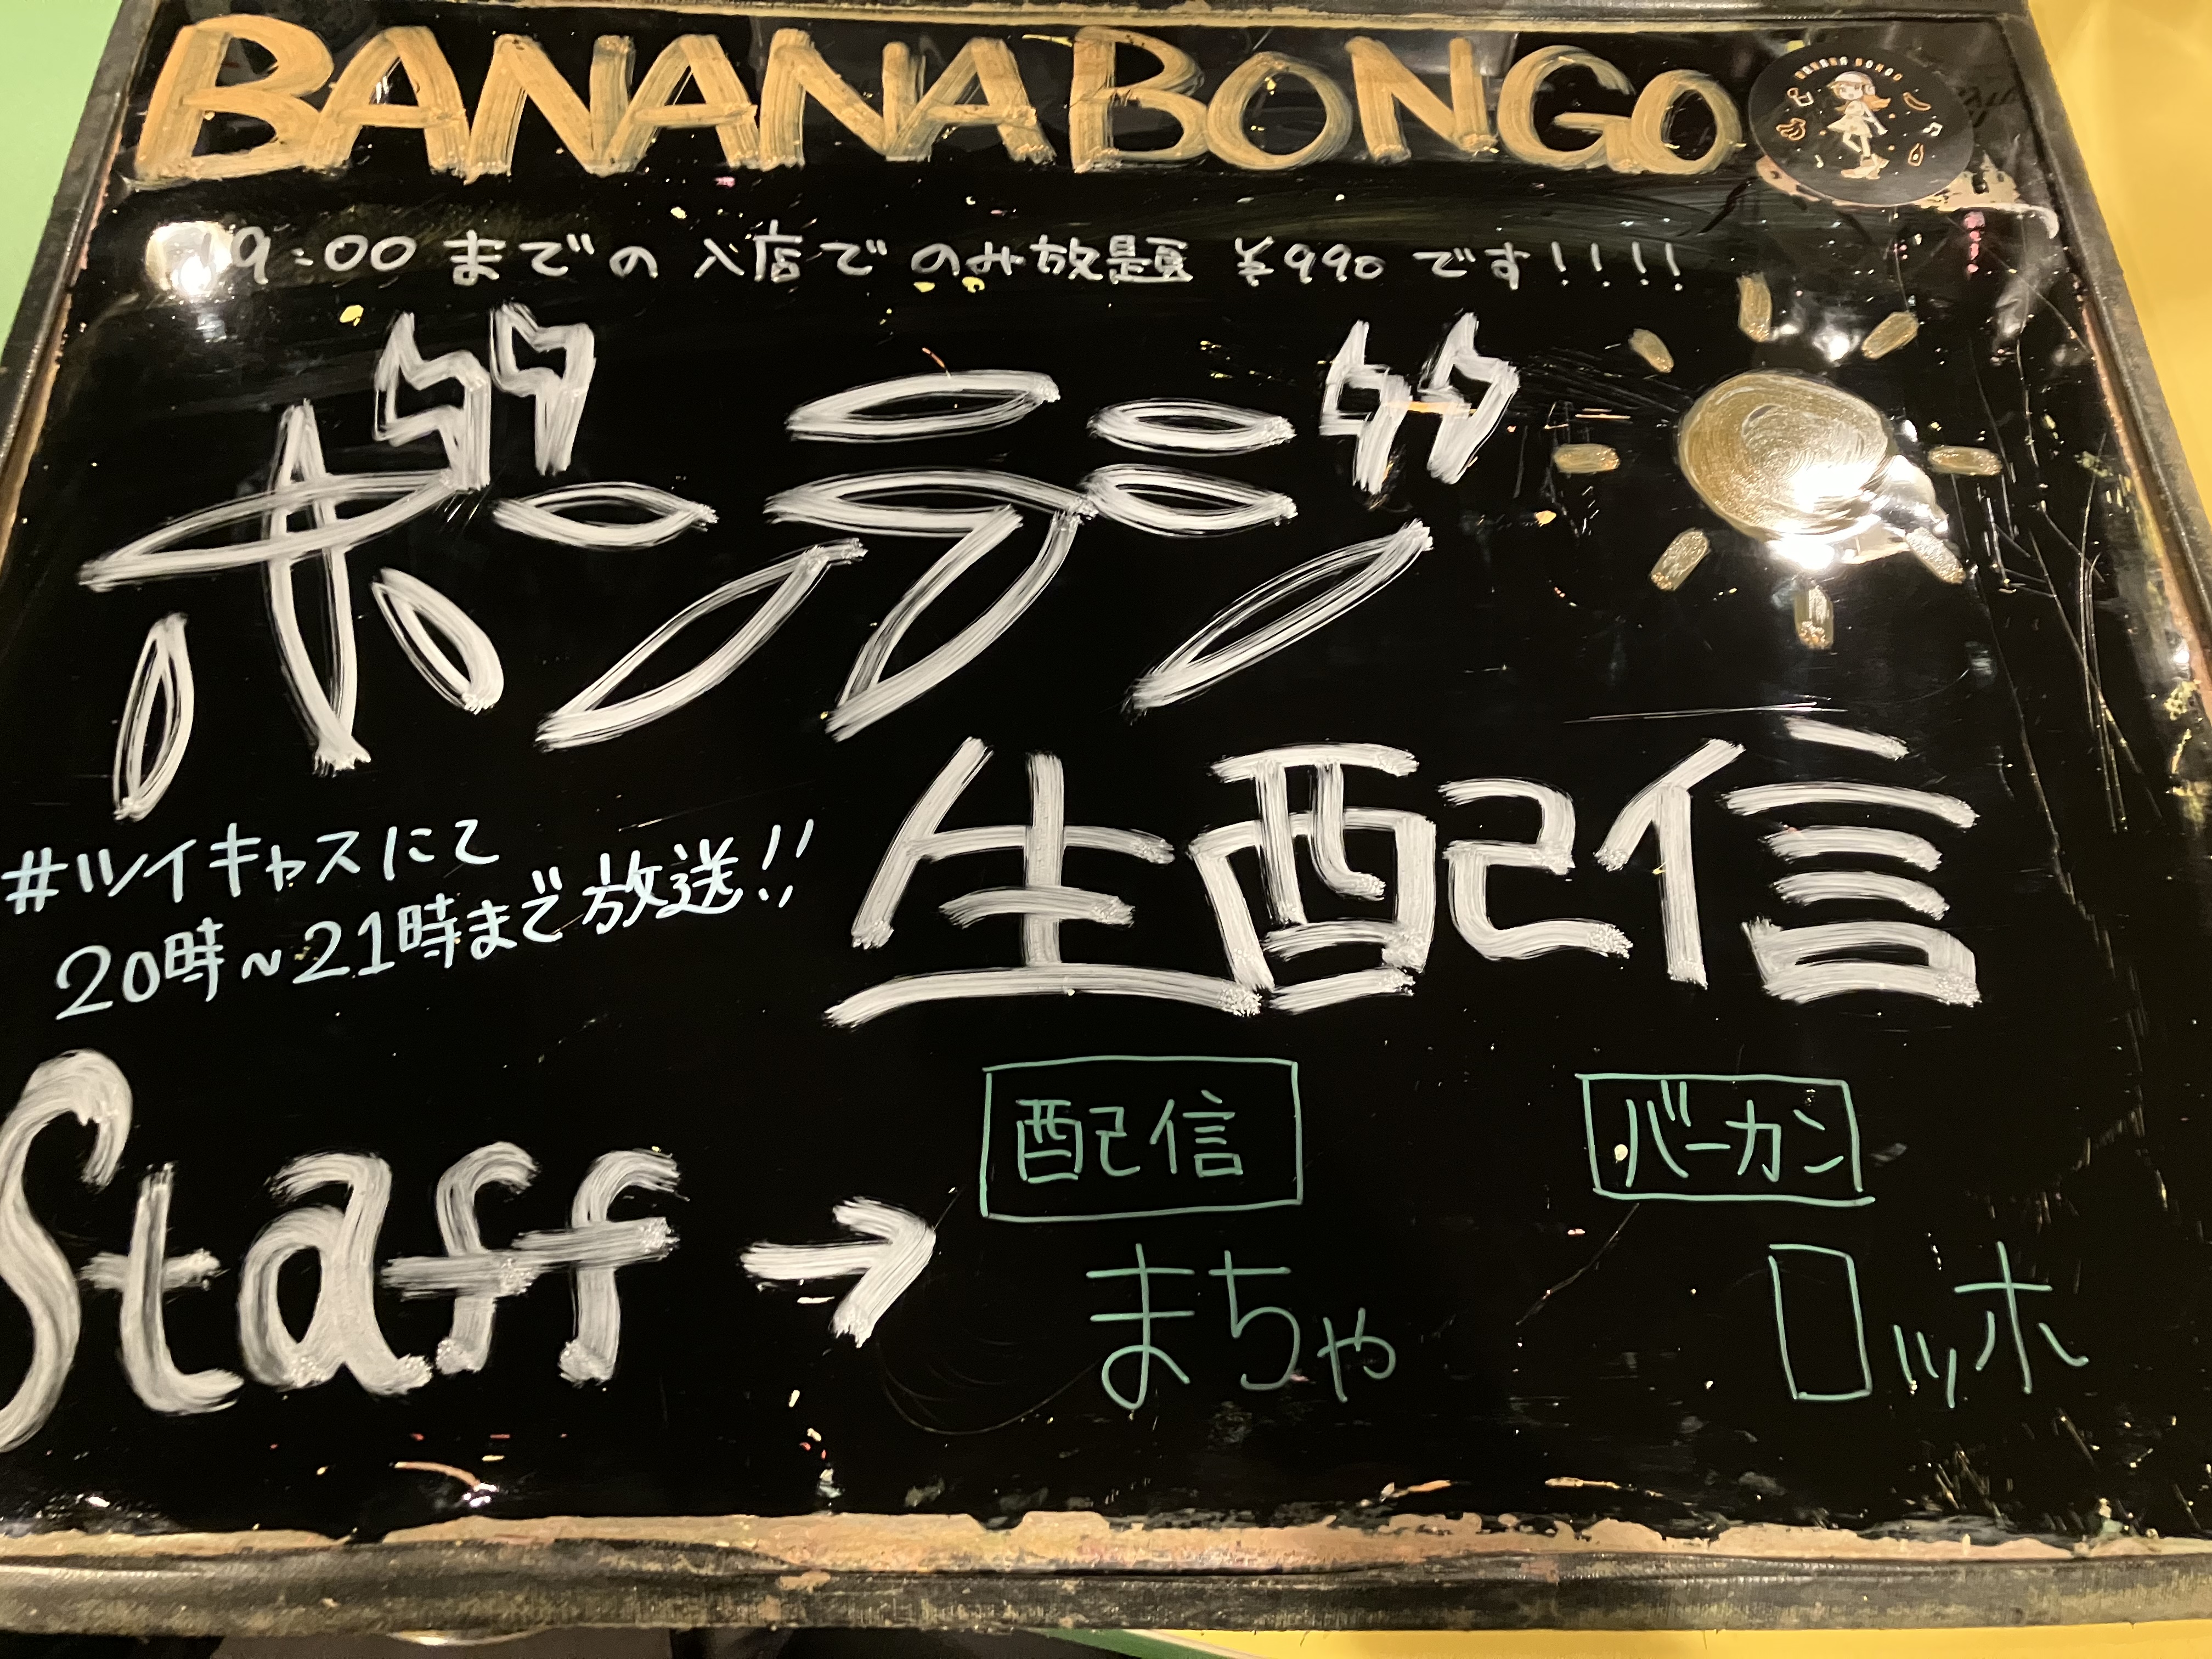 BANANA BONGO
BANANA BONGO
19:00 までの 入店で のみ放題 ¥990 です!!!!
ボンラジ
生配信
#ツイキャスにて
20時~21時まで放送!!
Staff → 配信 バーカン
まちゃ ロッホ